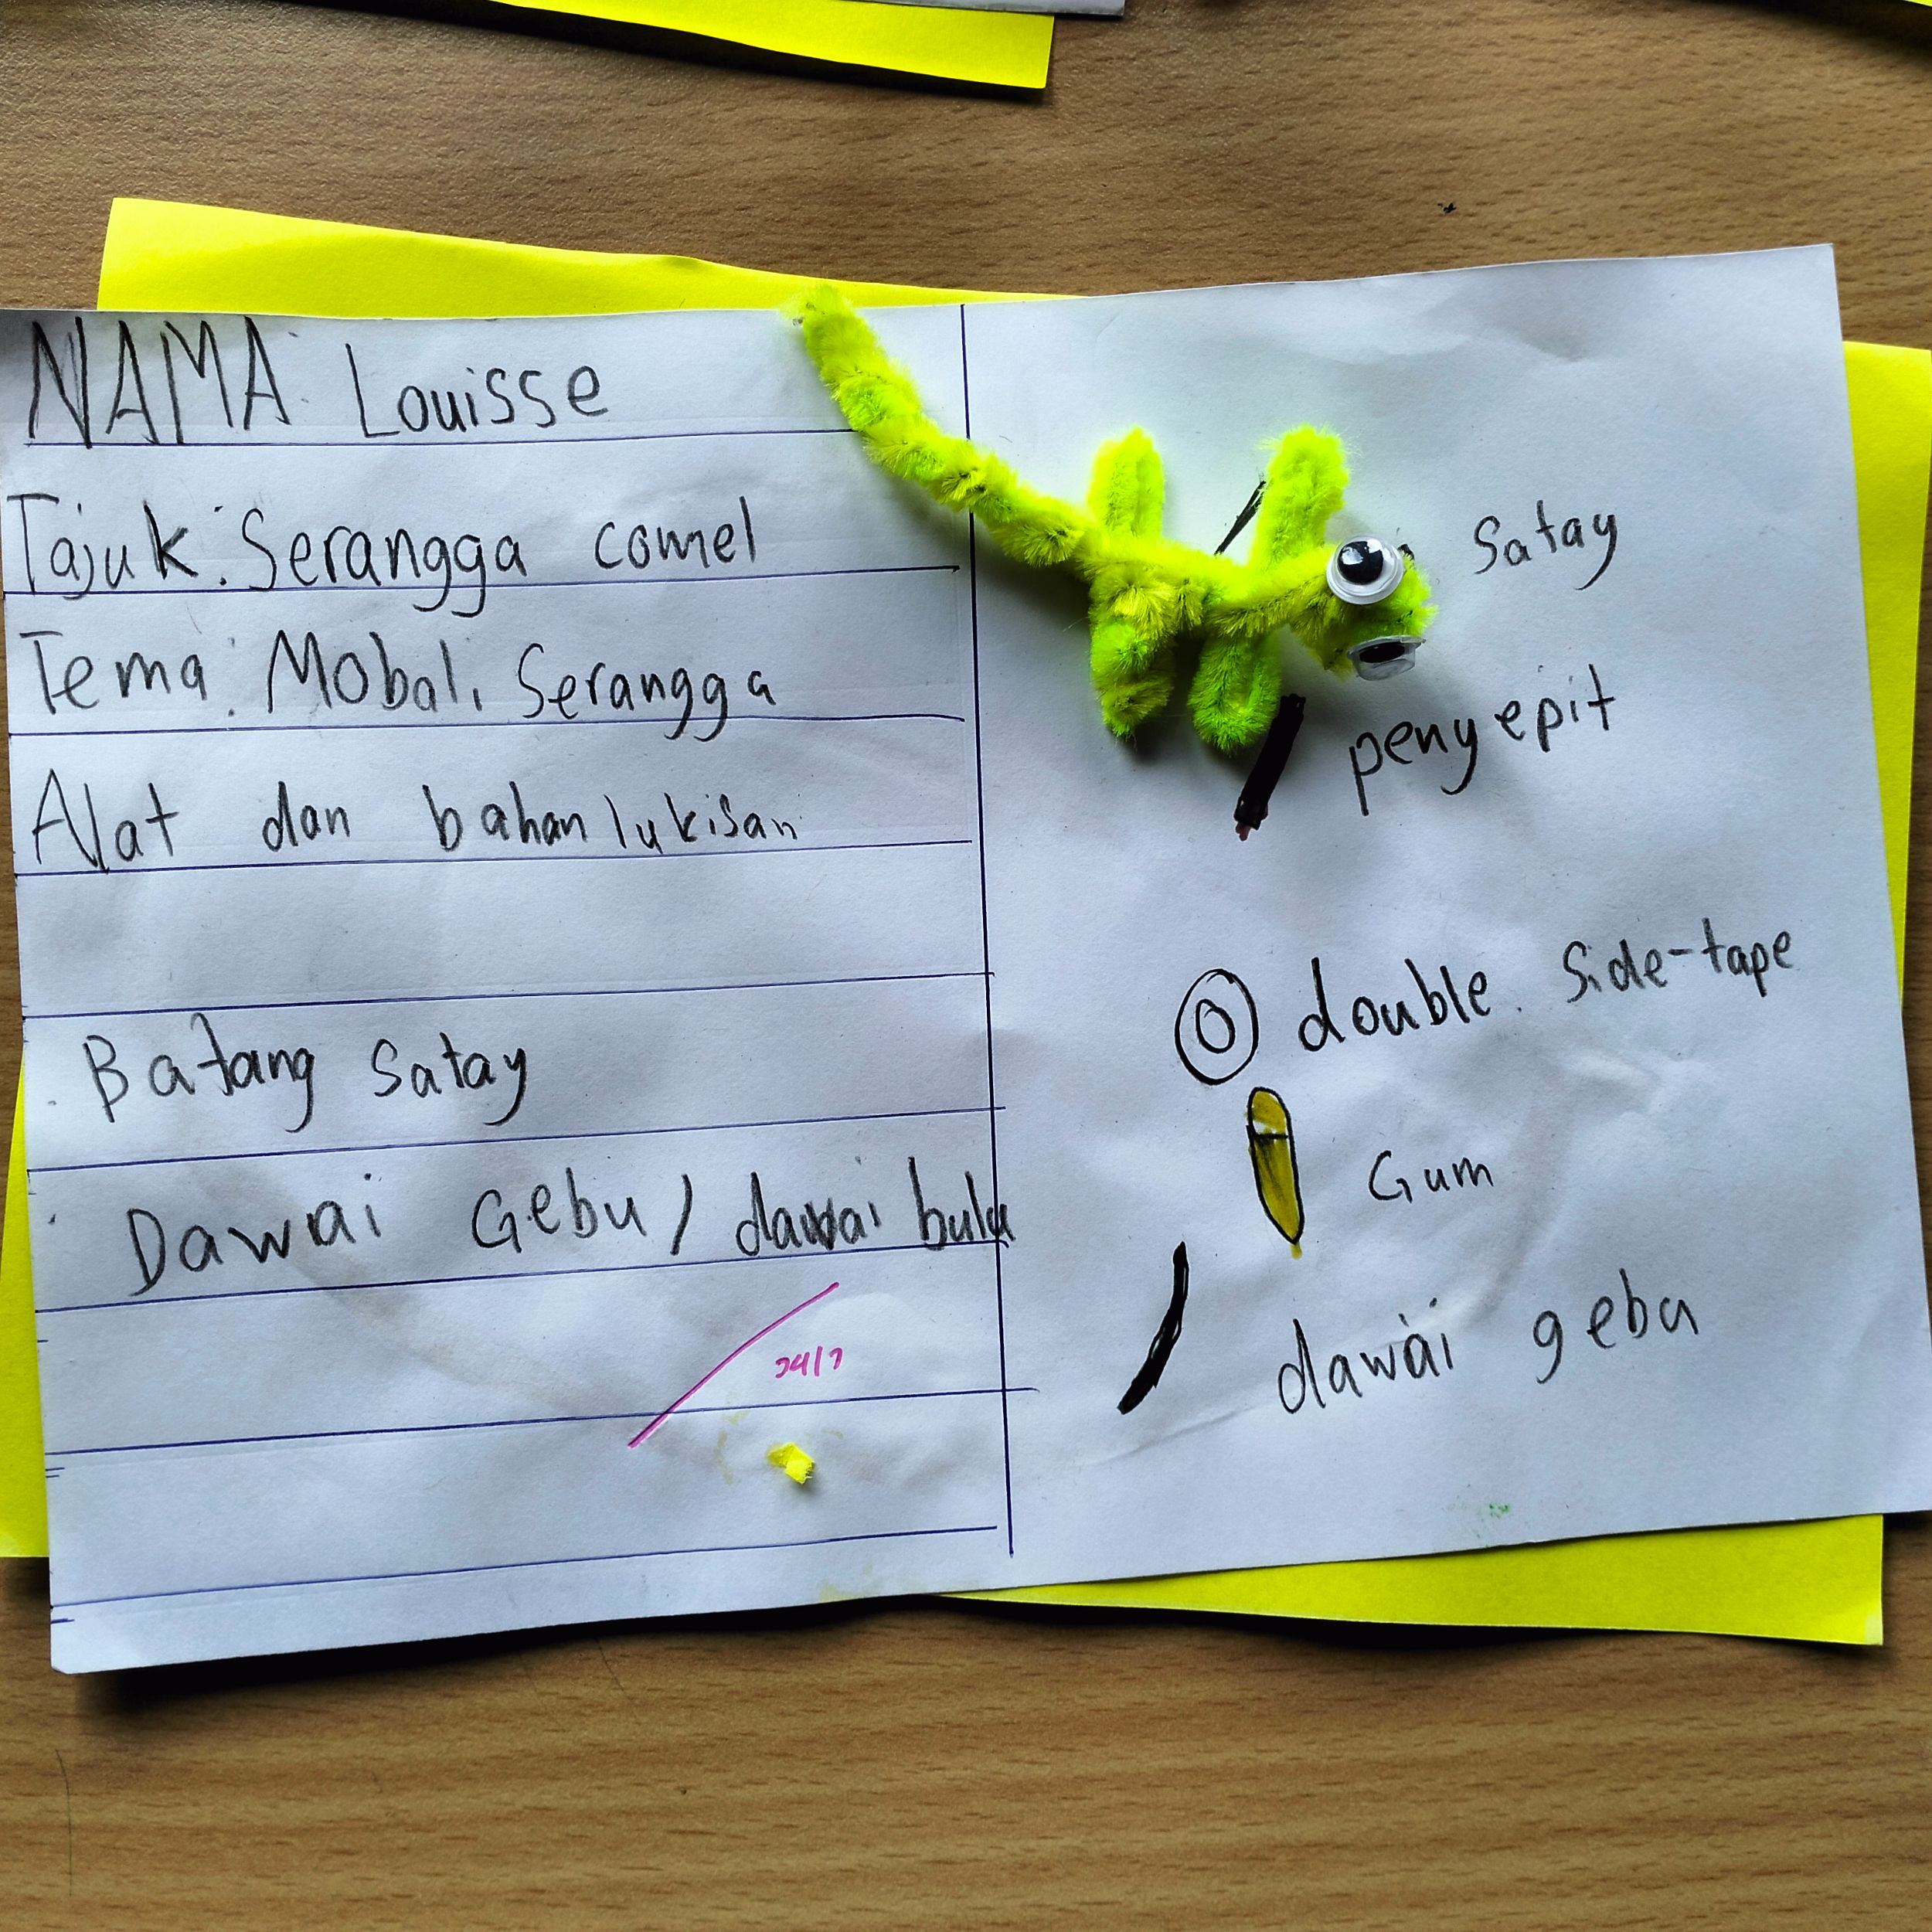 NAMA: Louisse
Tajuk: Serangga comel
Tema: Mobal, Serangga
Alat dan bahan lukisan
Batang Satay
Dawai Gebu / dawai bulu
24/7
Satay
penyepit
double side-tape
Gum
dawai gebu